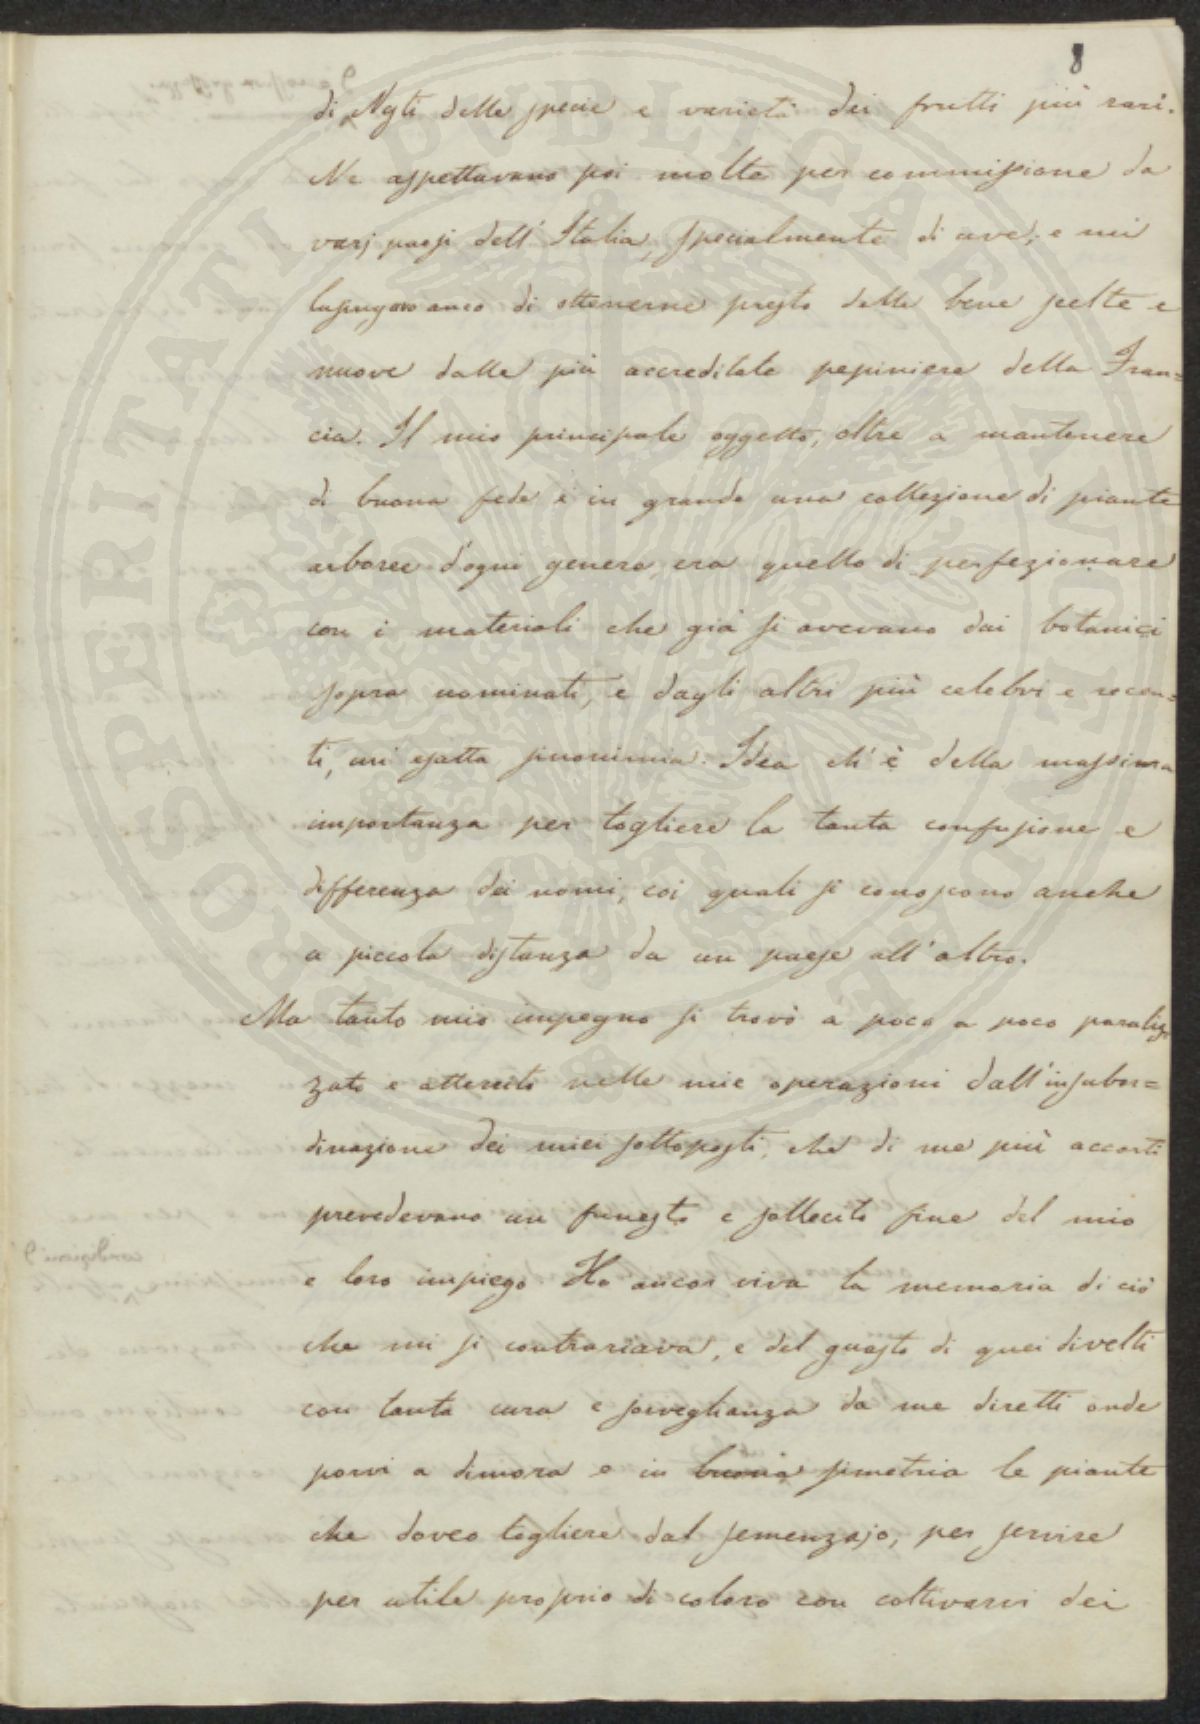 8
di Nesti delle specie e varietà dei frutti più rari.
Ne aspettavano poi molte per commissione da
varj paesi dell'Italia, specialmente di uve; e mi
lusingavo anco di ottenerne presto delle bene scelte e
nuove dalle più accreditate pepiniere della Fran=
cia. Il mio principale oggetto, oltre a mantenere
di buona fede e in grande una collezione di piante
arboree d'ogni genere, era quello di perfezionare
con i materiali che già si avevano dai botanici
sopra nominati, e dagli altri più celebri e recen=
ti, un'esatta sinonimia. Idea ch'è della massima
importanza per togliere la tanta confusione e
differenza dei nomi, coi quali si conoscono anche
a piccola distanza da un paese all'altro.
Ma tanto mio impegno si trovò a poco a poco paraliz
zato e atterrito nelle mie operazioni dall'insubor=
dinazione dei miei sottoposti, che di me più accorti
prevedevano un funesto e sollecito fine del mio
e loro impiego. Ho ancor viva la memoria di ciò
che mi si contrariava, e del guasto di quei divelti
con tanta cura e sorveglianza da me diretti onde
porvi a dimora e in buona simetria le piante
che doveo togliere dal semenzajo, per servire
per utile proprio di coloro con coltivarvi dei
PROSPERITATI PUBLICAE AUGENDAE